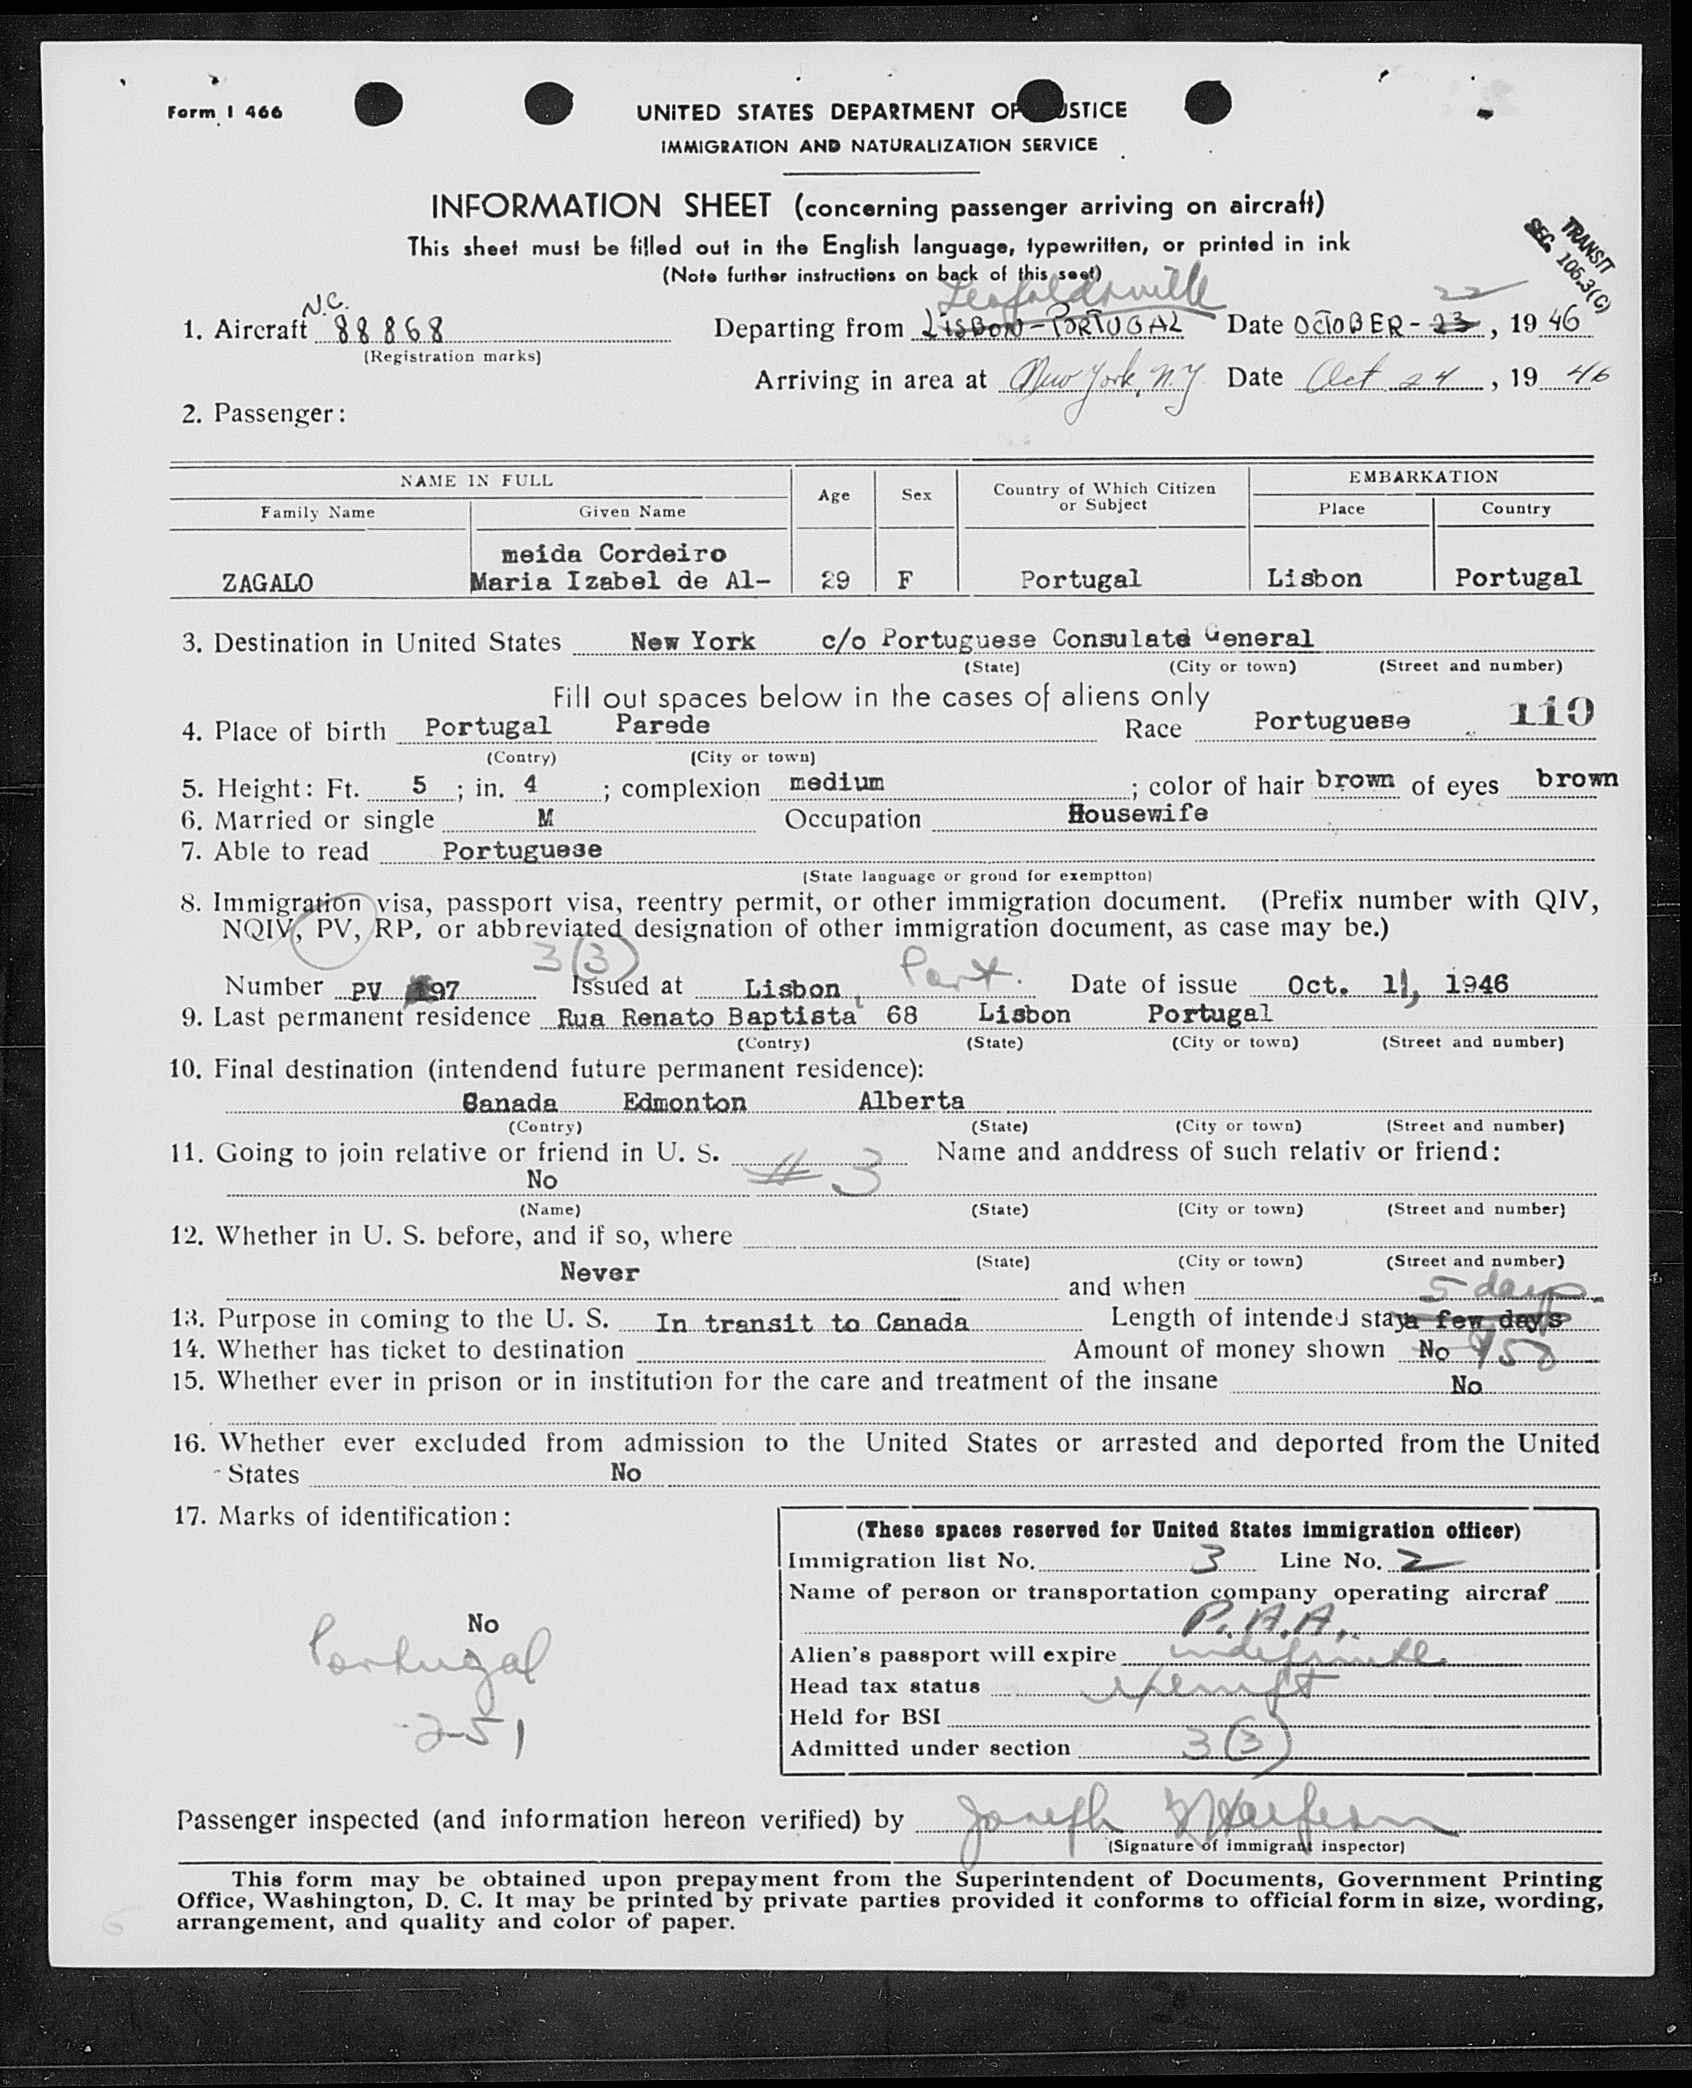 Form I 466
UNITED STATES DEPARTMENT OF JUSTICE
IMMIGRATION AND NATURALIZATION SERVICE
INFORMATION SHEET (concerning passenger arriving on aircraft)
This sheet must be filled out in the English language, typewritten, or printed in ink
(Note further instructions on back of this seet)
TRANSIT
SEC. 106.3(C)
Leopoldville
22
N.C.
1. Aircraft 88868 Departing from LISBON-PORTUGAL Date OCTOBER-23, 19 46
(Registration marks)
Arriving in area at New York, N.Y. Date Oct 24, 19 46
2. Passenger:
NAME IN FULL Age Sex Country of Which Citizen or Subject EMBARKATION
Family Name Given Name Place Country
meida Cordeiro
ZAGALO Maria Izabel de Al- 29 F Portugal Lisbon Portugal
3. Destination in United States New York c/o Portuguese Consulate General
(State) (City or town) (Street and number)
Fill out spaces below in the cases of aliens only
4. Place of birth Portugal Parede Race Portuguese 110
(Contry) (City or town)
5. Height: Ft. 5 ; in. 4 ; complexion medium ; color of hair brown of eyes brown
6. Married or single M Occupation Housewife
7. Able to read Portuguese
(State language or grond for exemptton)
8. Immigration visa, passport visa, reentry permit, or other immigration document. (Prefix number with QIV,
NQIV, PV, RP, or abbreviated designation of other immigration document, as case may be.)
3(3) Port.
Number PV 97 Issued at Lisbon, Date of issue Oct. 11, 1946
9. Last permanent residence Rua Renato Baptista 68 Lisbon Portugal
(Contry) (State) (City or town) (Street and number)
10. Final destination (intendend future permanent residence):
Canada Edmonton Alberta
(Contry) (State) (City or town) (Street and number)
11. Going to join relative or friend in U. S. Name and anddress of such relativ or friend:
No # 3
(Name) (State) (City or town) (Street and number)
12. Whether in U. S. before, and if so, where
(State) (City or town) (Street and number)
Never and when 5 days.
13. Purpose in coming to the U. S. In transit to Canada Length of intended stay a few days
14. Whether has ticket to destination Amount of money shown No 150
15. Whether ever in prison or in institution for the care and treatment of the insane No
16. Whether ever excluded from admission to the United States or arrested and deported from the United
States No
17. Marks of identification:
No
Portugal
2-51
(These spaces reserved for United States immigration officer)
Immigration list No. 3 Line No. 2
Name of person or transportation company operating aircraf
P.A.A.
Alien's passport will expire indefinite
Head tax status exempt
Held for BSI
Admitted under section 3(3)
Passenger inspected (and information hereon verified) by Joseph
(Signature of immigrant inspector)
This form may be obtained upon prepayment from the Superintendent of Documents, Government Printing
Office, Washington, D. C. It may be printed by private parties provided it conforms to official form in size, wording,
arrangement, and quality and color of paper.